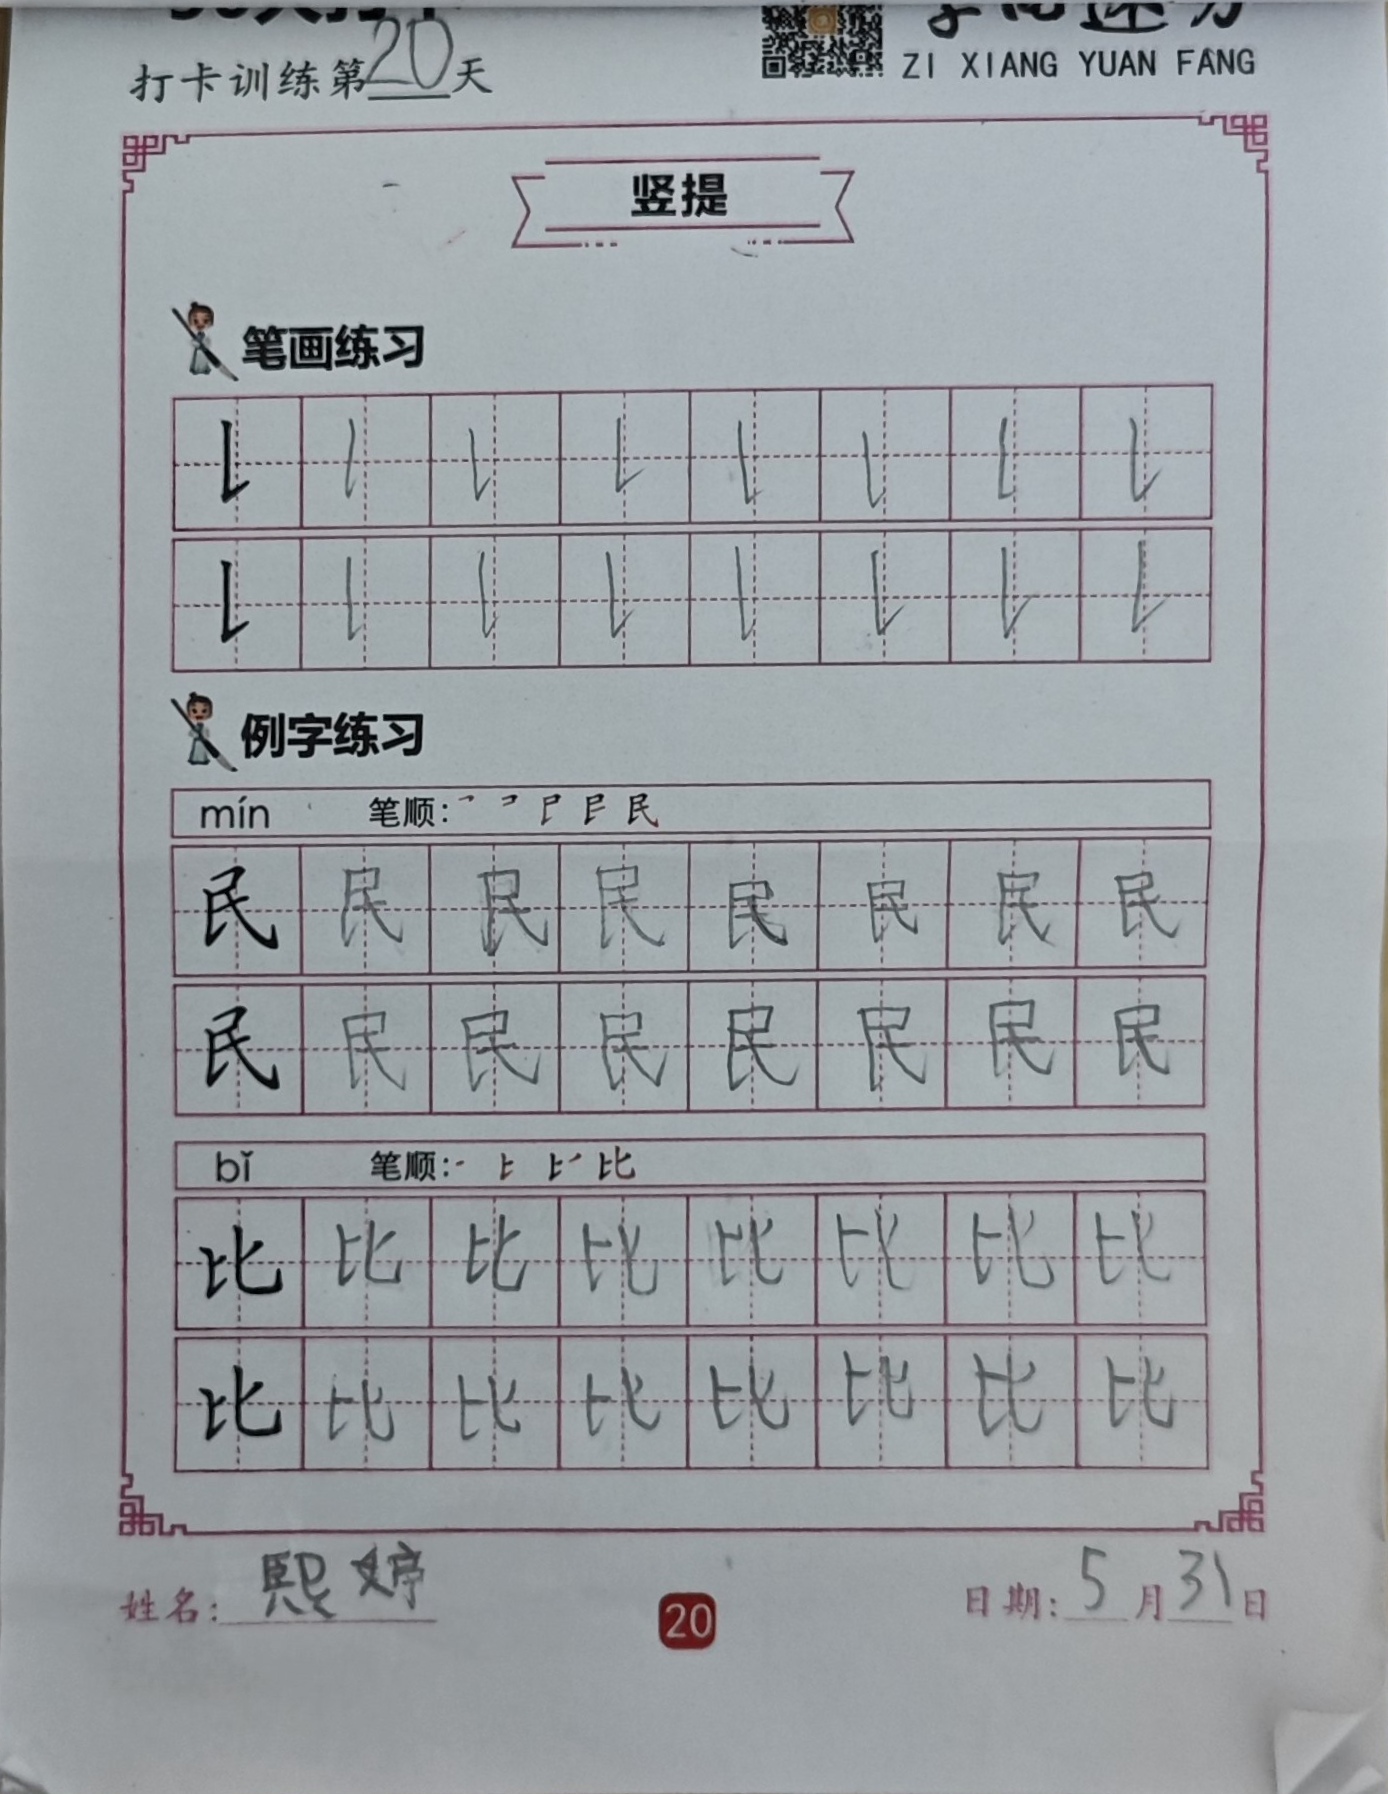 打卡训练第20天
ZI XIANG YUAN FANG
竖提
笔画练习
例字练习
mín 笔顺：
民 民 民 民 民 民 民 民
民 民 民 民 民 民 民 民
bǐ 笔顺：
比 比 比 比 比 比 比 比
比 比 比 比 比 比 比 比
姓名：熙婷
20
日期：5月31日